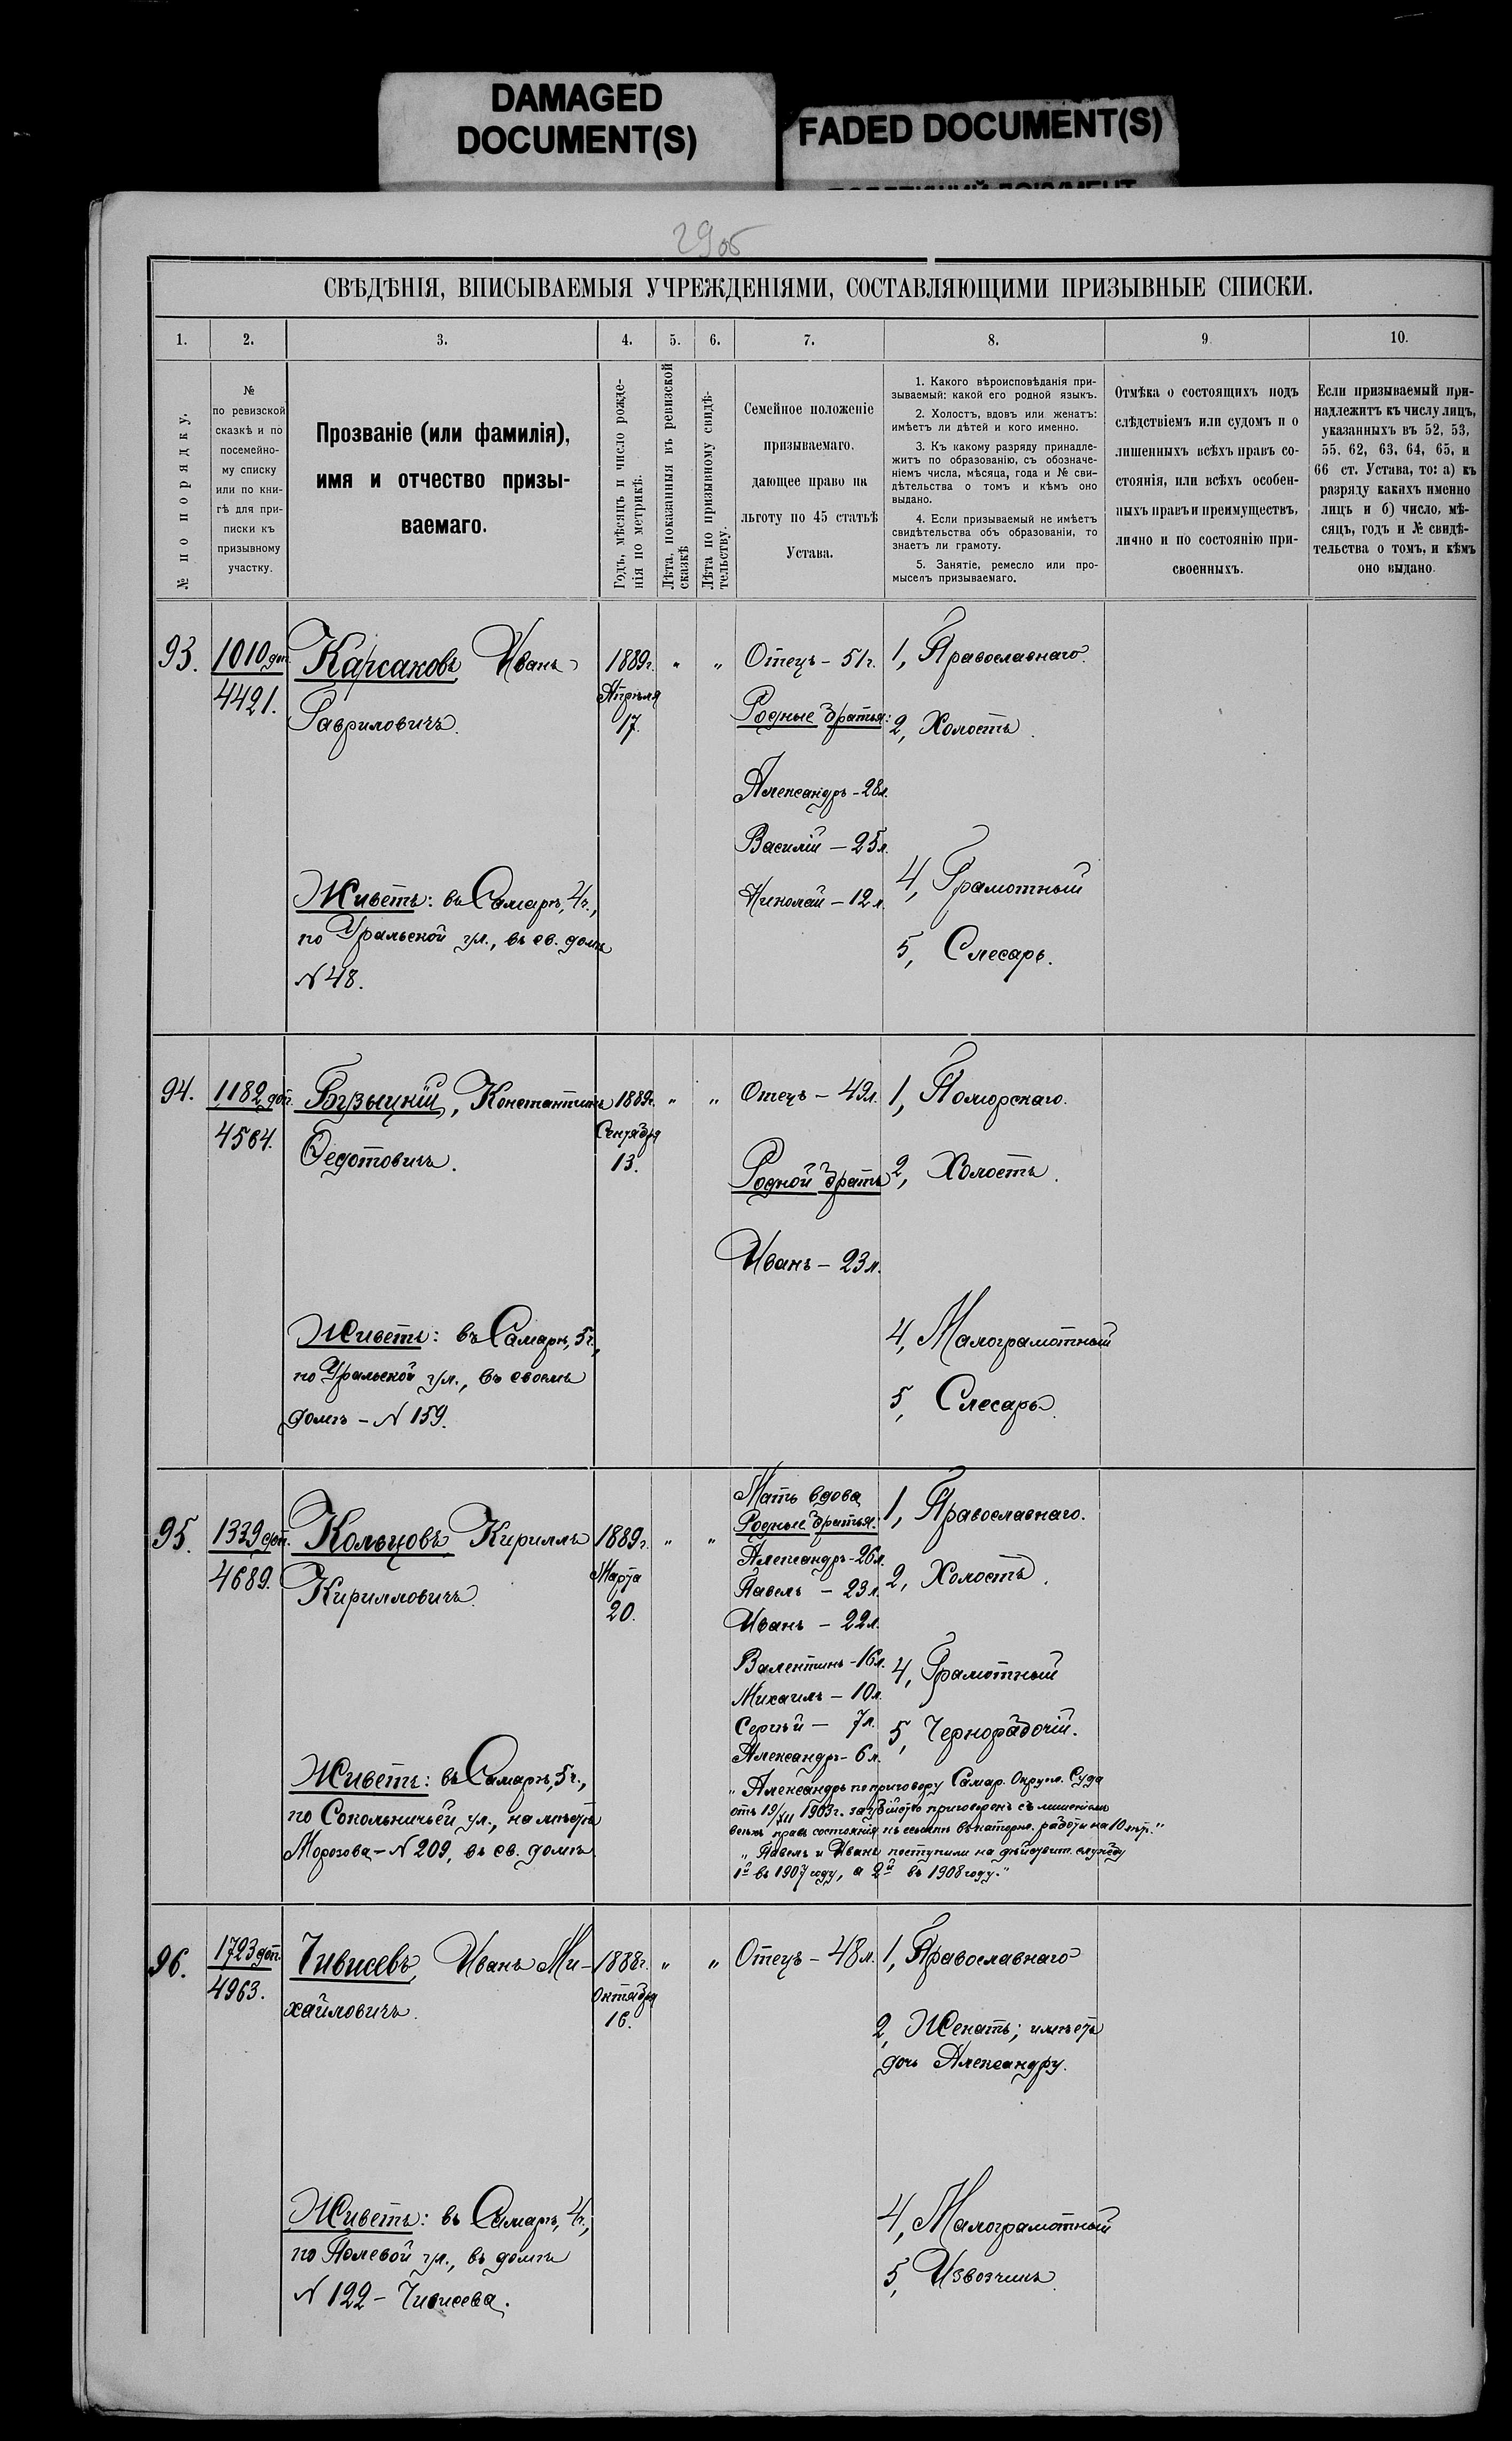 DAMAGED
DOCUMENT(S)
FADED DOCUMENT(S)
СВѢДѢНІЯ, ВПИСЫВАЕМЫЯ УЧРЕЖДЕНІЯМИ, СОСТАВЛЯЮЩИМИ ПРИЗЫВНЫЕ СПИСКИ.
1. 2. 3. 4. 5. 6. 7. 8. 9 10.
№ по порядку.
№
по ревизской
сказкѣ и по
посемейно-
му списку
или по кни-
гѣ для при-
писки къ
призывному
участку.
Прозваніе (или фамилія),
имя и отчество призы-
ваемаго.
Годъ, мѣсяцъ и число рожде-
нія по метрикѣ.
Лѣта, показанныя въ ревизской
сказкѣ
Лѣта по призывному свидѣ-
тельству.
Семейное положеніе
призываемаго,
дающее право на
льготу по 45 статьѣ
Устава.
1. Какого вѣроисповѣданія при-
зываемый: какой его родной языкъ.
2. Холостъ, вдовъ или женатъ:
имѣетъ ли дѣтей и кого именно.
3. Къ какому разряду принадле-
житъ по образованію, съ обозначе-
ніемъ числа, мѣсяца, года и № сви-
дѣтельства о томъ и кѣмъ оно
выдано.
4. Если призываемый не имѣетъ
свидѣтельства объ образованіи, то
знаетъ ли грамоту.
5. Занятіе, ремесло или про-
мыселъ призываемаго.
Отмѣка о состоящихъ подъ
слѣдствіемъ или судомъ и о
лишенныхъ всѣхъ правъ со-
стоянія, или всѣхъ особен-
ныхъ правъ и преимуществъ,
лично и по состоянію при-
своенныхъ.
Если призываемый при-
надлежитъ къ числу лицъ,
указанныхъ въ 52, 53,
55, 62, 63, 64, 65, и
66 ст. Устава, то: а) къ
разряду какихъ именно
лицъ и б) число, мѣ-
сяцъ, годъ и № свидѣ-
тельства о томъ, и кѣмъ
оно выдано.
93.
1010 доп.
4421.
Карсаковъ, Иванъ
Гавриловичъ.
Живетъ: въ Самарѣ, 4ч.,
по Уральской ул., въ св. домѣ
N 48.
1889г.
Апрѣля
17.
" "
Отецъ – 51г.
Родные братья:
Александръ – 28л.
Василій – 25л.
Николай – 12л.
1, Православнаго.
2, Холостъ.
4, Грамотный
5, Слесарь.
94.
1182 доп.
4564.
Константинъ
Ѳедотовичъ.
Живетъ: въ Самарѣ, 5ч.,
по Уральской ул., въ своемъ
домѣ – N 159.
1889г.
Сентября
13.
" "
Отецъ – 49л.
Родной братъ
Иванъ – 23л.
1, Поморскаго.
2, Холостъ.
4, Малограмотный
5, Слесарь.
95.
1339 доп.
4689.
Кольцовъ, Кириллъ
Кирилловичъ.
Живетъ: въ Самарѣ, 5ч.,
по Сокольничьей ул., на мѣстѣ
Морозова – N 209, въ св. домѣ.
1889г.
Марта
20.
" "
Мать вдова
Родные братья:
Александръ – 26л.
Павелъ – 23л.
Иванъ – 22л.
Валентинъ – 16л.
Михаилъ – 10л.
Сергѣй – 7л.
Александръ – 6л.
1, Православнаго.
2, Холостъ.
4, Грамотный
5, Чернорабочій.
"Александръ по приговору Самар. Окружн. Суда
отъ 19/XII 1903г. за убійство приговоренъ съ лишеніемъ
всѣхъ правъ состоянія къ ссылкѣ въ каторжн. работы на 10 лѣтъ."
"Павелъ и Иванъ поступили на дѣйствит. службу
1й въ 1907 году, а 2й въ 1908 году."
96.
1723 доп.
4963.
Чивисевъ, Иванъ Ми-
хайловичъ.
Живетъ: въ Самарѣ, 4ч.,
по Полевой ул., въ домѣ
N 122 – Чивисева.
1888г.
Октября
16.
" "
Отецъ – 48л.
1, Православнаго
2, Женатъ; имѣетъ
дочь Александру.
4, Малограмотный
5, Извозчикъ.